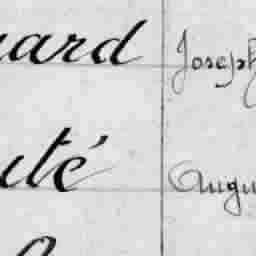 uard Joseph
uté Augu